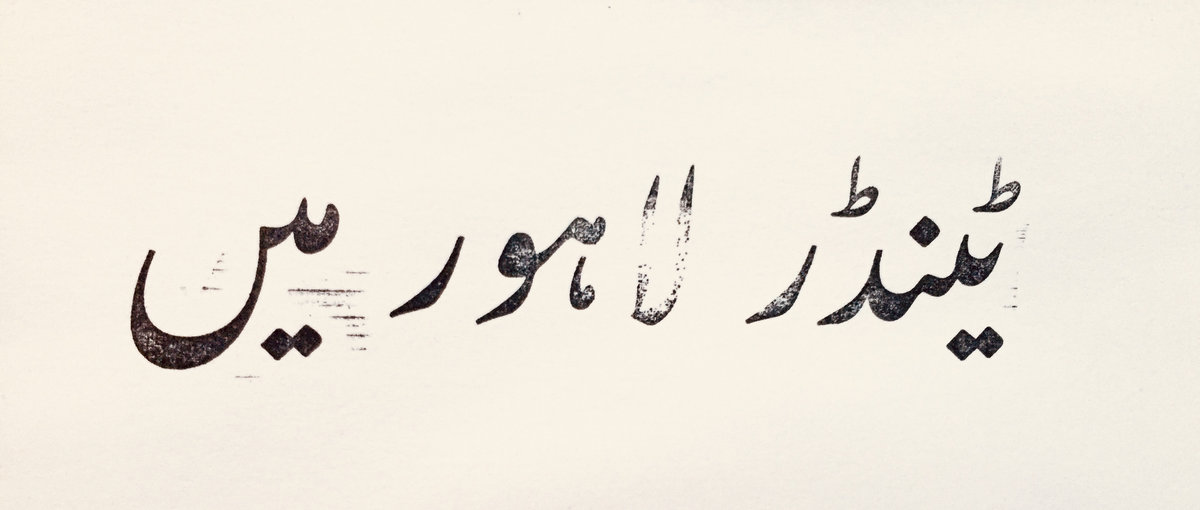 ٹینڈر لاہور میں